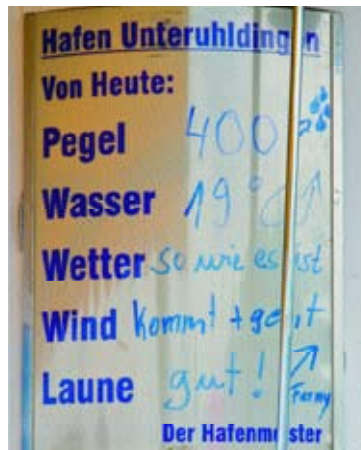 Hafen Unteruhldingen
Von Heute:
Pegel 400
Wasser 19°C
Wetter so wie es ist
Wind kommt + geht
Laune gut!
Der Hafenmeister